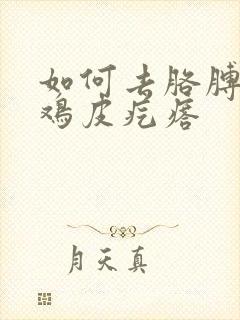 如何去胳膊
鸡皮疙瘩
月天真